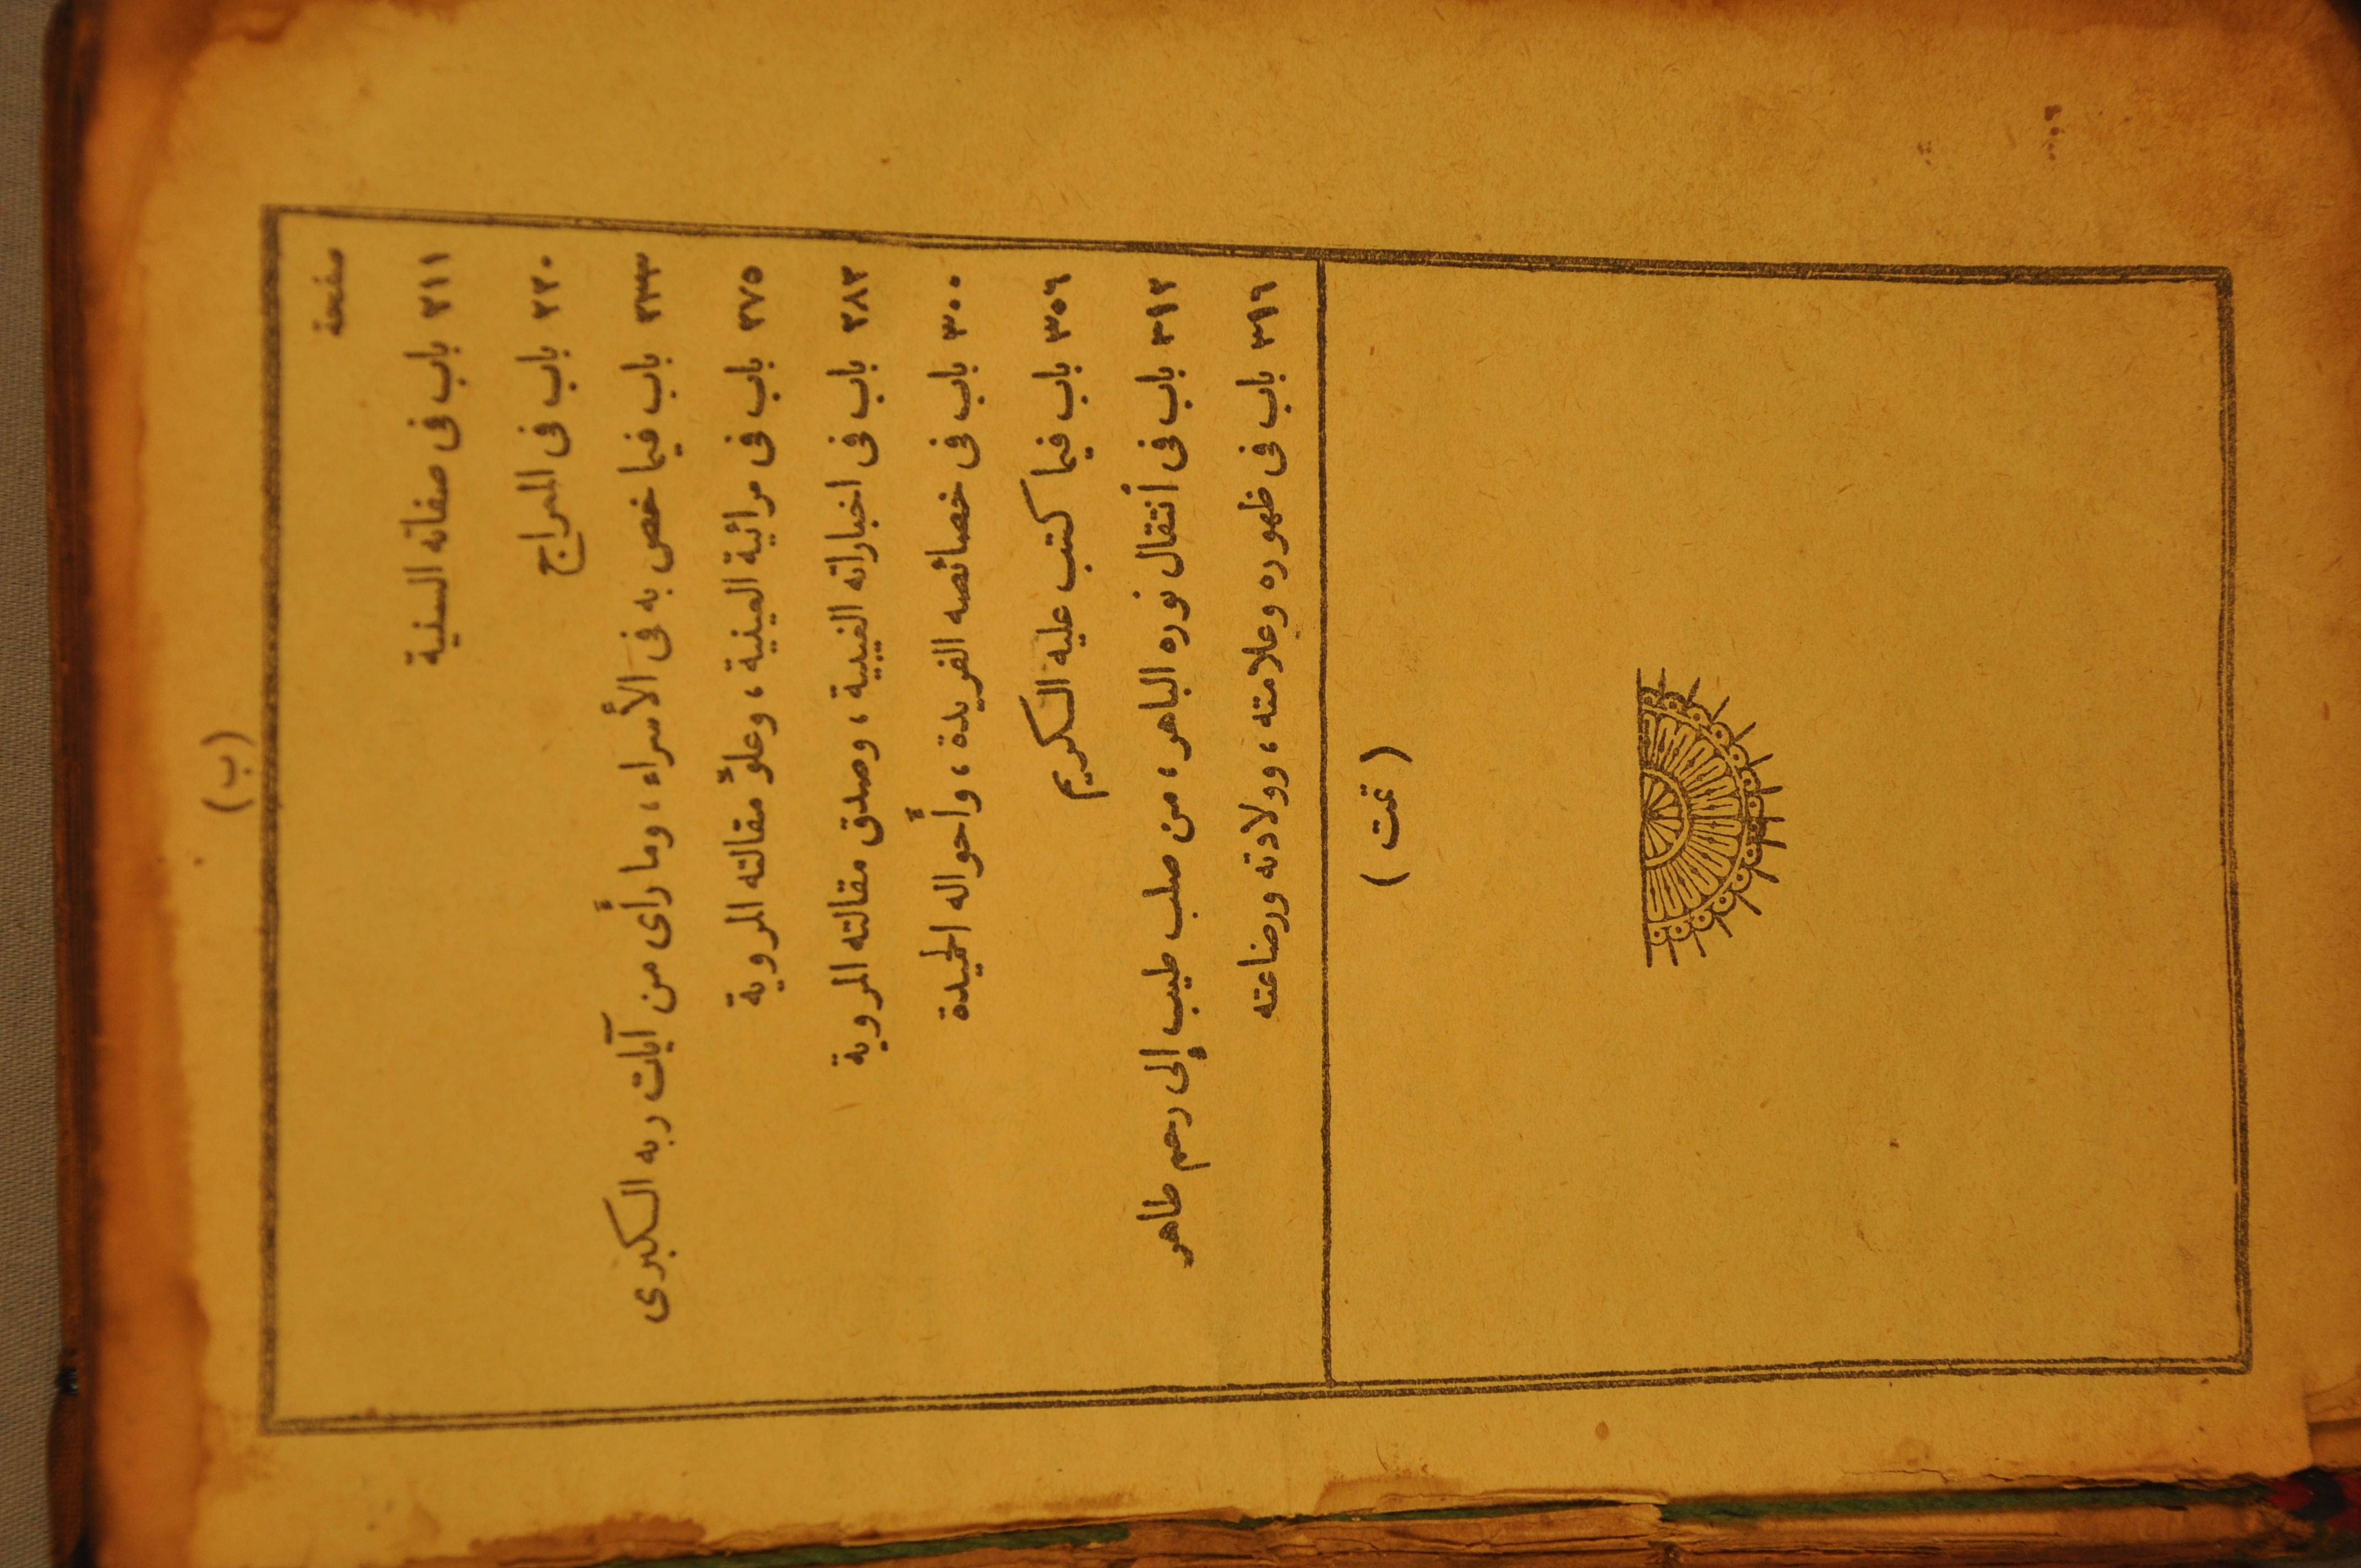 (ب)
صفحة
٢١١ باب فى صفاته السنية
٢٢٠ باب فى المعراج
٢٣٣ باب فيما خص به فى الأسراء، وما رأى من آيات ربه الكبرى
٢٧٥ باب فى مرائية العينية، وعلو مقالته المروية
٢٨٢ باب فى اخباراته الغيبية، وصدق مقالته المروية
٣٠٠ باب فى خصائصه الفريدة، وأحواله الحميدة
٣٥٦ باب فيما كتب عليه الكريم
٣١٢ باب فى أنتقال نوره الباهر، من صلب طيب إلى رحم طاهر
٣١٦ باب فى ظهوره وعلامته، وولادته ورضاعته
(تمت)